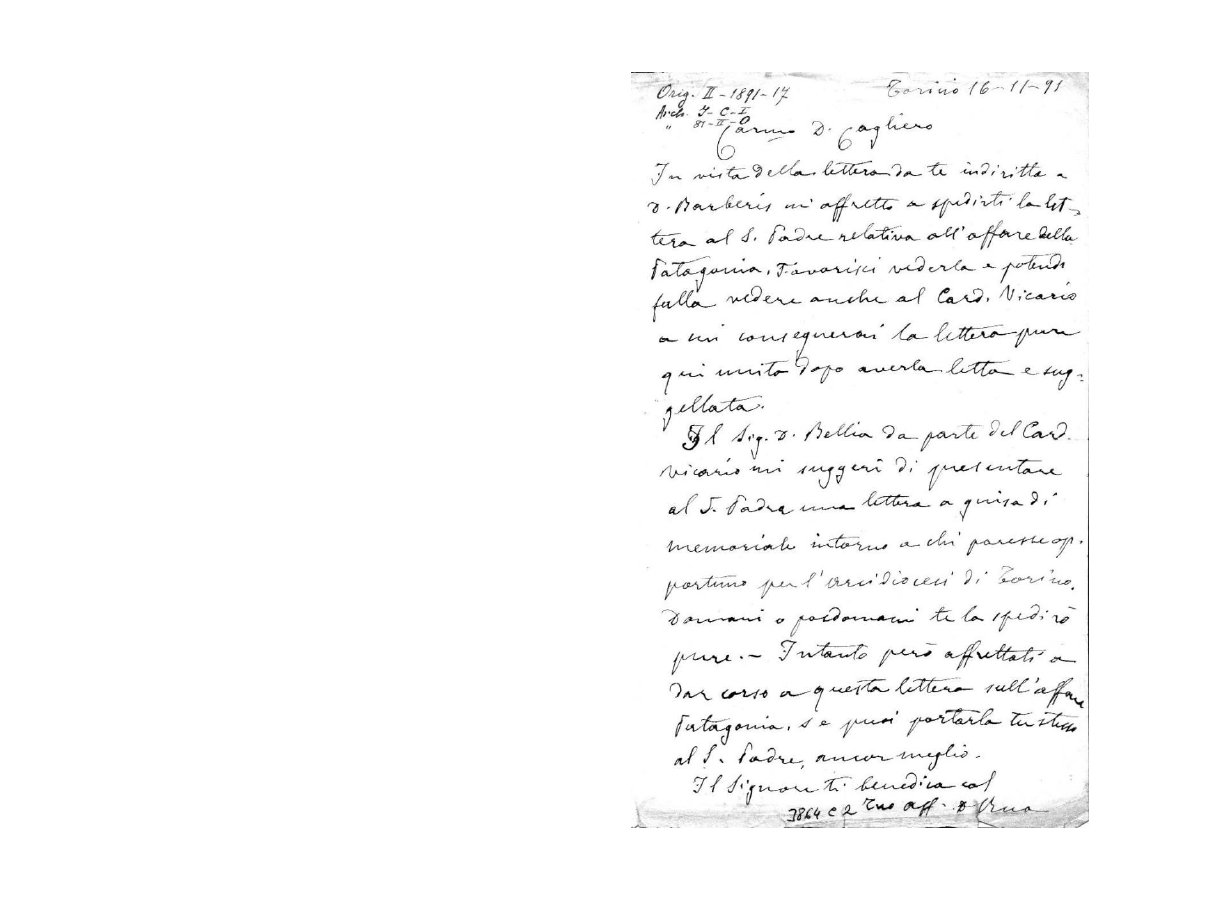 Orig. II-1891-17
Torino 16-11-91
Arch. I-C-I
" 81-II-O
Carmo D. Cagliero
In vista della lettera da te indiritta a
D. Barberis mi affretto a spedirti la let-
tera al S. Padre relativa all'affare della
Patagonia. Favorisci vederla e potendo
falla vedere anche al Card. Vicario
a cui consegnerai la lettera pure
qui unita dopo averla letta e sug-
gellata.
Il Sig. D. Bellia da parte del Card.
Vicario mi suggerì di presentare
al S. Padre una lettera a guisa di
memoriale intorno a chi paresse op-
portuno per l'arcidiocesi di Torino.
Domani o posdomani te la spedirò
pure. - Intanto però affrettati a
dar corso a questa lettera sull'affare
Patagonia. Se puoi portarla tu stesso
al S. Padre, ancor meglio.
Il Signore ti benedica col
3864 C 2 Tuo aff. D Rua